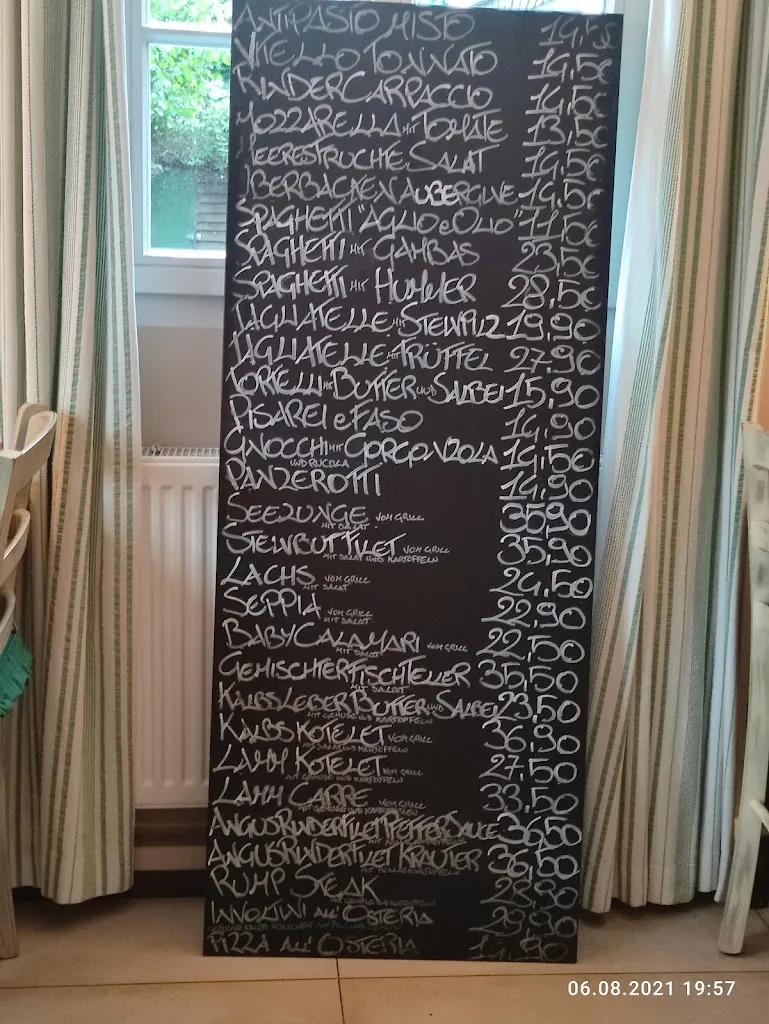 ANTIPASTO MISTO 14,5€
VITELLO TONNATO 14,5€
RINDERCARPACCIO 14,5€
MOZZARELLA MIT TOMATE 13,5€
MEERESFRÜCHTE SALAT 14,5€
ÜBERBACKEN AUBERGINE 14,5€
SPAGHETTI "AGLIO e OLIO" 11,5€
SPAGHETTI MIT GAMBAS 23,5€
SPAGHETTI MIT HUMMER 28,5€
TAGLIATELLE MIT STEINPILZ 19,90
TAGLIATELLE MIT TRÜFFEL 27,90
TORTELLI MIT BUTTER UND SALBEI 15,90
PISAREI e FASO 14,90
GNOCCHI MIT GORGONZOLA 14,50
UND RUCOLA
PANZEROTTI 14,90
SEEZUNGE VOM GRILL 35,90
MIT SALAT
STEINBUTTFILET VOM GRILL 35,90
MIT SALAT UND KARTOFFELN
LACHS VOM GRILL 24,50
MIT SALAT
SEPPIA VOM GRILL 22,90
MIT SALAT
BABYCALAMARI VOM GRILL 22,50
MIT SALAT
GEMISCHTER FISCHTELLER 35,50
MIT SALAT
KALBSLEBER BUTTER UND SALBEI 23,50
MIT GEMÜSE UND KARTOFFELN
KALBS KOTELET VOM GRILL 36,90
MIT SALAT UND KARTOFFELN
LAMM KOTELET VOM GRILL 27,50
MIT GEMÜSE UND KARTOFFELN
LAMM CARRE VOM GRILL 33,50
MIT GEMÜSE UND KARTOFFELN
ANGUS RINDERFILET PFEFFER SAUCE 36,50
ANGUS RINDERFILET KRÄUTER 36,50
RUMP STEAK 28,90
MIT GEMÜSE UND KARTOFFELN
INVOLTINI ALL'OSTERIA 29,90
PIZZA ALL'OSTERIA 14,90
06.08.2021 19:57